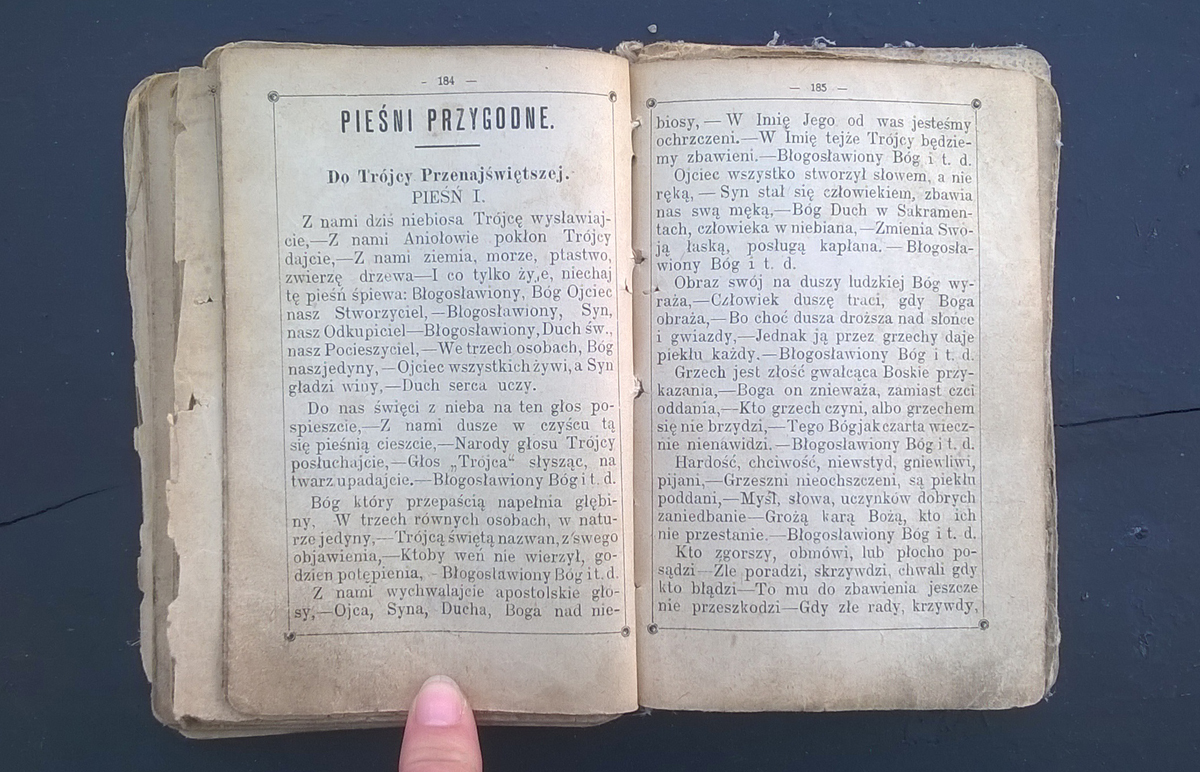 - 184 —
PIEŚNI PRZYGODNE.
Do Trójcy Przenajświętszej.
PIEŚŃ I.
Z nami dziś niebiosa Trójcę wysławiaj-
cie,—Z nami Aniołowie pokłon Trójcy
dajcie,—Z nami ziemia, morze, ptastwo,
zwierzę drzewa—I co tylko żyje, niechaj
tę pieśń śpiewa: Błogosławiony, Bóg Ojciec
nasz Stworzyciel,—Błogosławiony, Syn,
nasz Odkupiciel—Błogosławiony, Duch św.,
nasz Pocieszyciel,—We trzech osobach, Bóg
nasz jedyny,—Ojciec wszystkich żywi, a Syn
gładzi winy,—Duch serca uczy.
Do nas święci z nieba na ten głos po-
spieszcie,—Z nami dusze w czyścu tą
się pieśnią cieszcie,—Narody głosu Trójcy
posłuchajcie,—Głos „Trójca“ słysząc, na
twarz upadajcie.—Błogosławiony Bóg i t. d.
Bóg który przepaścią napełnia głębi-
ny, W trzech równych osobach, w natu-
rze jedyny,—Trójcą świętą nazwan, z swego
objawienia,—Ktoby weń nie wierzył, go-
dzien potępienia, — Błogosławiony Bóg i t. d.
Z nami wychwalajcie apostolskie gło-
sy,—Ojca, Syna, Ducha, Boga nad nie-
— 185 —
biosy, — W Imię Jego od was jesteśmy
ochrzczeni.—W Imię tejże Trójcy będzie-
my zbawieni.—Błogosławiony Bóg i t. d.
Ojciec wszystko stworzył słowem, a nie
ręką, — Syn stał się człowiekiem, zbawia
nas swą męką,—Bóg Duch w Sakramen-
tach, człowieka w niebiana,—Zmienia Swo-
ją łaską, posługą kapłana. — Błogosła-
wiony Bóg i t. d.
Obraz swój na duszy ludzkiej Bóg wy-
raża,—Człowiek duszę traci, gdy Boga
obraża,—Bo choć dusza droższa nad słońce
i gwiazdy,—Jednak ją przez grzechy daje
piekłu każdy.—Błogosławiony Bóg i t. d.
Grzech jest złość gwałcąca Boskie przy-
kazania,—Boga on znieważa, zamiast czci
oddania,—Kto grzech czyni, albo grzechem
się nie brzydzi,—Tego Bóg jak czarta wiecz-
nie nienawidzi.—Błogosławiony Bóg i t. d.
Hardość, chciwość, niewstyd, gniewliwi,
pijani,—Grzeszni nieochszczeni, są piekłu
poddani,—Myśl, słowa, uczynków dobrych
zaniedbanie—Grożą karą Bożą, kto ich
nie przestanie.—Błogosławiony Bóg i t. d.
Kto zgorszy, obmówi, lub płocho po-
sądzi—Zle poradzi, skrzywdzi, chwali gdy
kto błądzi—To mu do zbawienia jeszcze
nie przeszkodzi—Gdy złe rady, krzywdy,